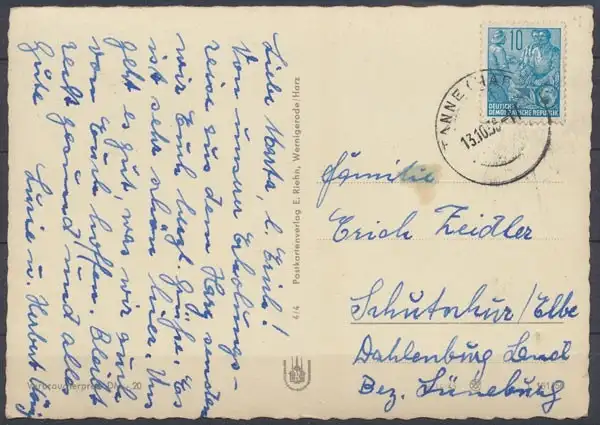 Liebe Marta, l. Erich!
Von unserer Erholungs-
reise aus dem Harz senden
wir Euch herzl. Grüße. Es
ist sehr schön hier. Uns
geht es gut, was wir auch
von Euch hoffen. Bleibt
recht gesund und alles
Gute
Luzie u. Herbert
4/4 Postkartenverlag E. Riehn, Wernigerode/Harz
10
DEUTSCHE
DEMOKRATISCHE REPUBLIK
TANNE (HARZ)
13.10.58
Familie
Erich Zeidler
Schutschur/Elbe
Dahlenburg Land
Bez. Lüneburg
Verbraucherpreis DM -.20